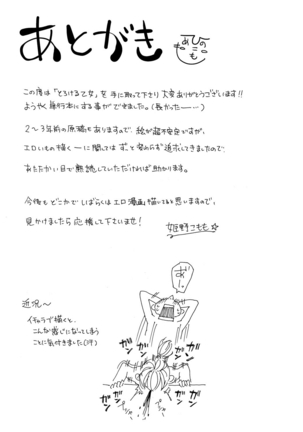 あとがき
この度は「とろける乙女」を手に取って下さり大変ありがとうございます!!
ようやく単行本にする事ができました。(長かったーー)
2〜3年前の原稿もありますので、絵が超不安定ですが、
エロいもの描くーに関してはずっと変わらず追求してきましたので、
あたたかい目で熟読していただければ助かります。
今後もどこかでしばらくはエロ漫画描いてると思いますので、
見かけましたら応援して下さいませ!
姫野こもも☆
近況〜
イチャラブ描くと、
こんな感じになってしまう
ことに気付きました(汗)
ガン
ガン
ガン
ガン
ガン
ガン